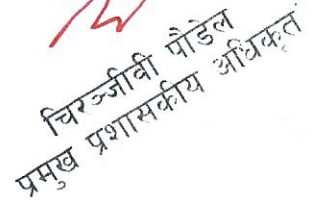 चिरञ्जीवी पौडेल
प्रमुख प्रशासकीय अधिकृत